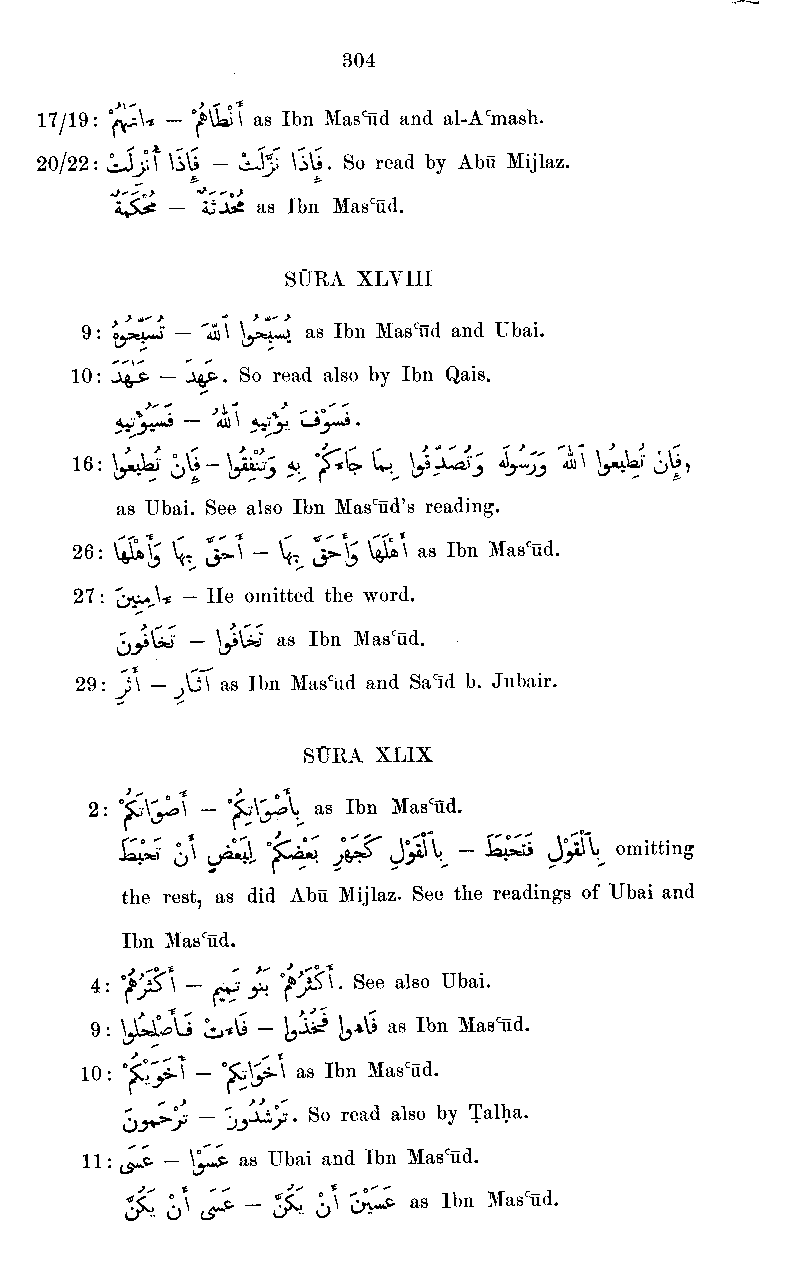 304
17/19: ءَاتَىٰهُمْ — أَنْطَاهُمْ as Ibn Masʿūd and al-Aʿmash.
20/22: فَإِذَا أُنْزِلَتْ — فَإِذَا نَزَلَتْ. So read by Abū Mijlaz.
مُحْكَمَةٌ — مُحْدَثَةٌ as Ibn Masʿūd.
SŪRA XLVIII
9: تُسَبِّحُوهُ — يُسَبِّحُوا ٱللّٰهَ as Ibn Masʿūd and Ubai.
10: عَـٰهَدَ — عَهِدَ. So read also by Ibn Qais.
فَسَيُؤْتِيهِ — فَسَوْفَ يُؤْتِيهِ ٱللّٰهُ.
16: فَإِنْ تُطِيعُوا — فَإِنْ تُطِيعُوا ٱللّٰهَ وَرَسُولَهُ وَتُصَدِّقُوا بِمَا جَاءَكُمْ بِهِ وَتُنْفِقُوا,
as Ubai. See also Ibn Masʿūd's reading.
26: أَحَقَّ بِهَا وَأَهْلَهَا — أَهْلَهَا وَأَحَقَّ بِهَا as Ibn Masʿūd.
27: ءَامِنِينَ — He omitted the word.
تَخَافُونَ — تَخَافُوا as Ibn Masʿūd.
29: أَثَرِ — آثَارِ as Ibn Masʿud and Saʿīd b. Jubair.
SŪRA XLIX
2: أَصْوَاتَكُمْ — بِأَصْوَاتِكُمْ as Ibn Masʿūd.
بِٱلْقَوْلِ كَجَهْرِ بَعْضِكُمْ لِبَعْضٍ أَنْ تَحْبَطَ — بِٱلْقَوْلِ فَتَحْبَطَ omitting
the rest, as did Abū Mijlaz. See the readings of Ubai and
Ibn Masʿūd.
4: أَكْثَرُهُمْ — أَكْثَرُهُمْ بَنُو تَمِيمٍ. See also Ubai.
9: فَاءَتْ فَأَصْلِحُوا — فَاءُوا فَخُذُوا as Ibn Masʿūd.
10: أَخَوَيْكُمْ — أَخَوَاتِكُمْ as Ibn Masʿūd.
تُرْحَمُونَ — تَرْشُدُونَ. So read also by Ṭalḥa.
11: عَسَى — عَسَوْا as Ubai and Ibn Masʿūd.
عَسَى أَنْ يَكُنَّ — عَسَيْنَ أَنْ يَكُنَّ as Ibn Masʿūd.